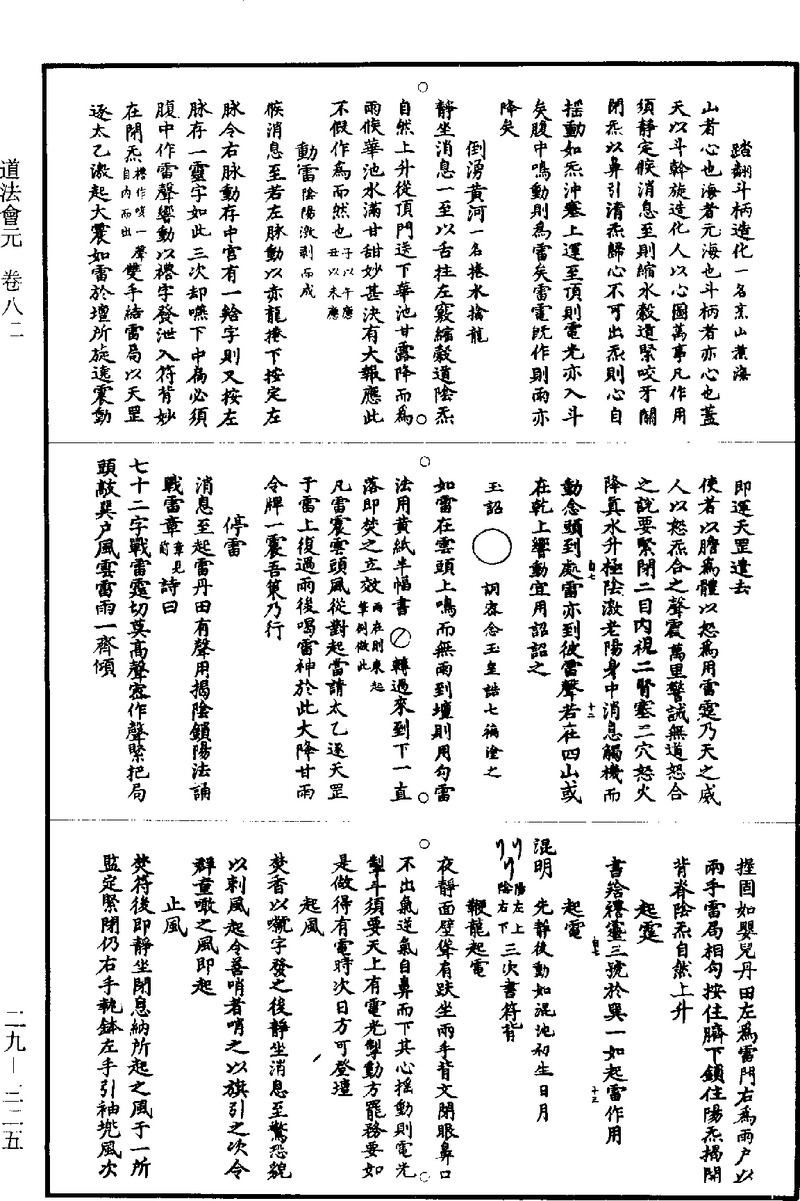 踏翻斗柄造化一名京山煮海
山者心也海者元海也斗柄者亦心也蓋
天以斗斡旋造化人以心圖萬事凡作用
須靜定候消息至則縮水穀道緊咬牙關
閉炁以鼻引清炁歸心不可出炁則心自
搖動如炁沖塞上運至頂則電光亦入斗
矣腹中鳴動則為雷矣雷電既作則雨亦
降矣
倒湧黃河一名捲水擒龍
靜坐消息一至以舌拄左竅縮穀道陰炁
自然上升從頂門送下華池甘露降而為
雨候華池水滿甘甜妙甚決有大報應此
不假作為而然也子以午應丑以未應
動雷陰陽激剥而成
候消息至若左脉動以亦龍捲下按定左
脉令右脉動存中宮有一字則又按左
脉存一靈字如此三次却嚥下中為必須
腹中作雷聲響動以字發泄入符背妙
在閉炁作一聲自內而出雙手結雷局以天罡
逐太乙激起大震如雷於壇所旋遶震動
即運天罡遣去
使者以膽為體以怒為用雷霆乃天之威
人以怒炁合之聲震萬里警誡無道怒合
之說要緊閉二目內視二腎塞二穴怒火
降真水升極陰激老陽身中消息觸機而
動念頭到處雷亦到彼雷聲若在四山或
在乾上響動宜用詔詔之
玉詔　○　詞容念玉皇誥七徧塗之
如雷在雲頭上鳴而無雨到壇則用勾雷
法用黃紙半幅書　轉過來到下一直
落即焚之立效雨在則東起筆倒做此
凡雷震雲頭風從對起當請太乙逐天罡
于雷上復過雨後喝雷神於此大降甘雨
令牌一震吾策乃行
停雷
消息至起雷丹田有聲用揭陰鎖陽法誦
戰雷章章見前詩曰
七十二字戰雷霆切莫高聲密作聲緊把局
頭敲巽户風雲雷雨一齊傾
握固如嬰兒丹田左為雷門右為雨户以
兩手雷局相勾按住臍下鎖住陽炁揭開
背脊陰炁自然上升
起霆
書靈三號於巽一如起雷作用
起電
混明　先靜後動如混沌初生日月
陽左上陰右下三次書符背
鞭龍起電
夜靜面壁聳肩趺坐兩手背叉閉眼鼻口
不出氣逆氣自鼻而下其心搖動則電光
掣斗須要天上有電光掣動方罷務要如
是做得有電時次日方可登壇
起風
焚香以字發之後靜坐消息至驚恐貌
以剌風起令善哨者哨之以旗引之次令
群童噉之風即起
止風
焚符後即靜坐閉息納所起之風于一所
監定緊閉仍右手執鉢左手引袖兜風次
道法會元　卷八二
二九—三二五